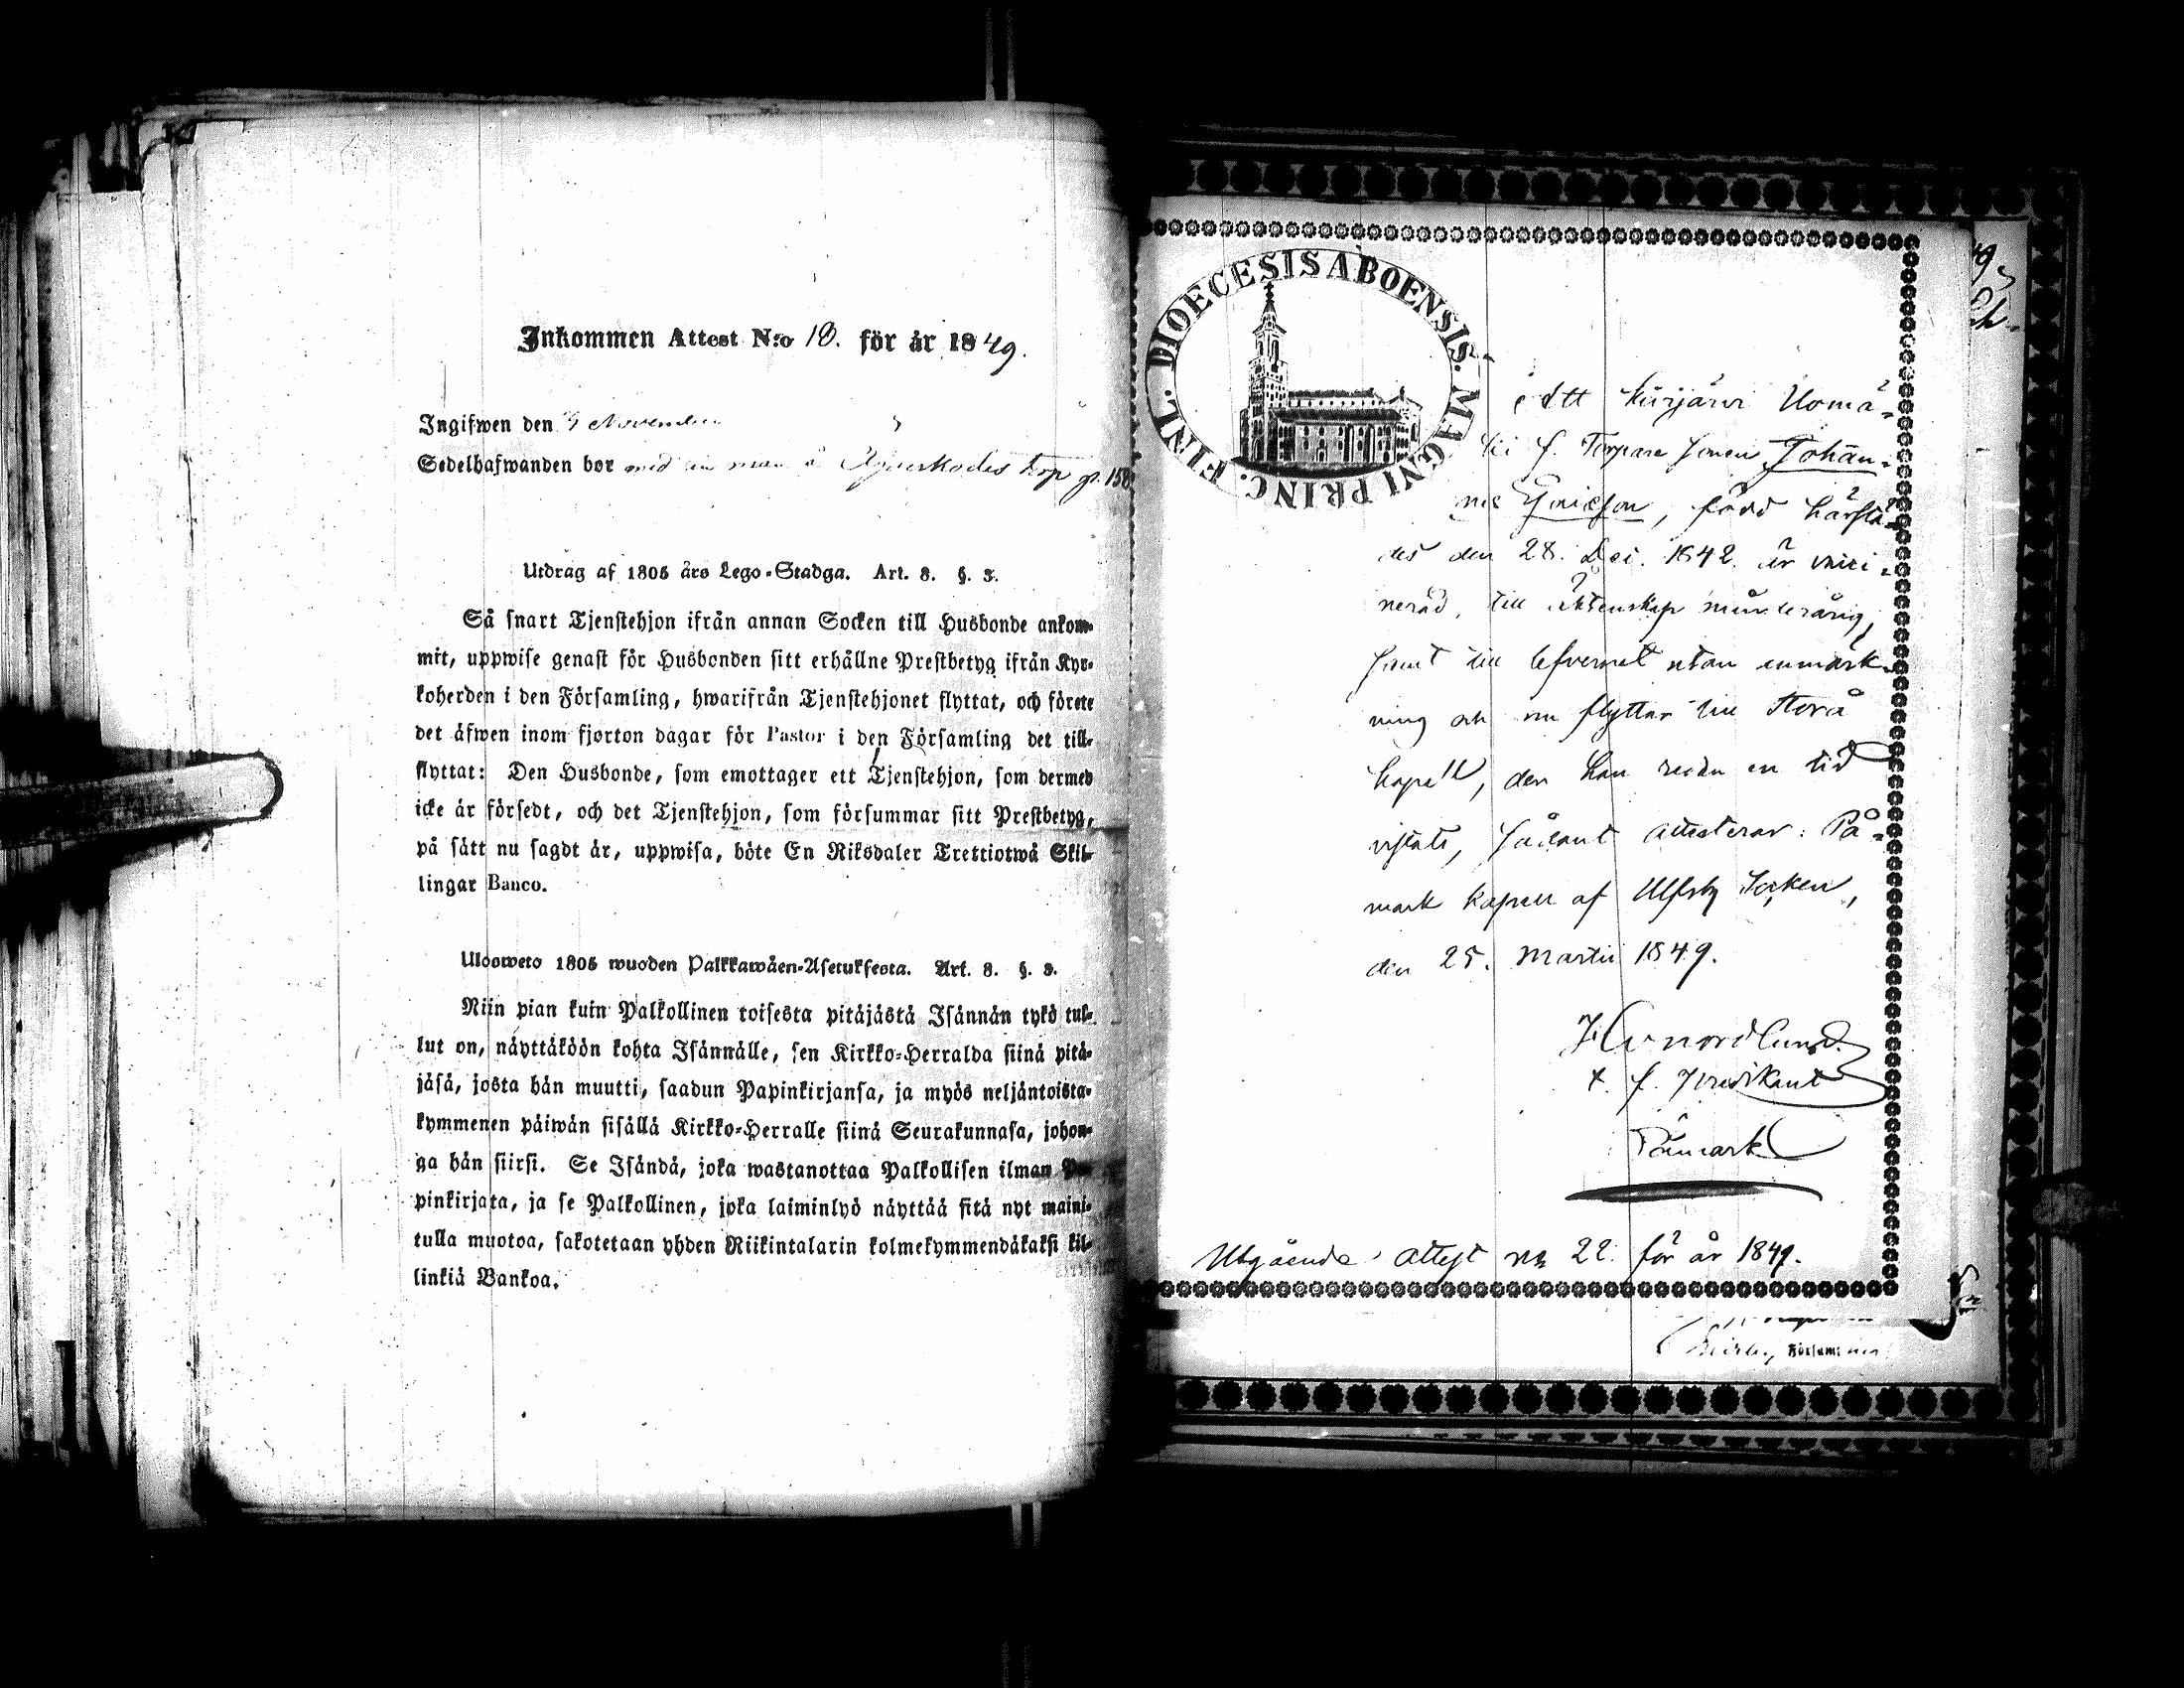 Inkommen Attest N:o 18. för år 1849.
Ingifwen den November
Sedelhafwanden bor med sin man å torp p. 158
Utdrag af 1805 års Lego-Stadga. Art. 8. §. 3.
Så snart Tjenstehjon ifrån annan Socken till Husbonde ankom-
mit, uppwise genast för Husbonden sitt erhållne Prestbetyg ifrån Kyr-
koherden i den Församling, hwarifrån Tjenstehjonet flyttat, och förete
det äfwen inom fjorton dagar för Pastor i den Församling det till-
flyttat: Den Husbonde, som emottager ett Tjenstehjon, som dermed
icke är försedt, och det Tjenstehjon, som försummar sitt Prestbetyg,
på sätt nu sagdt är, uppwisa, böte En Riksdaler Trettiotwå Skil-
lingar Banco.
Ulosweto 1805 wuoden Palkkawäen-Asetuksesta. Art. 8. §. 3.
Niin pian kuin Palkollinen toisesta pitäjästä Isännän tykö tul-
lut on, näyttäköön kohta Isännälle, sen Kirkko-Herralda siinä pitä-
jäsä, josta hän muutti, saadun Papinkirjansa, ja myös neljäntoista-
kymmenen päiwän sisällä Kirkko-Herralle siinä Seurakunnasa, johon-
ga hän siirsi. Se Isändä, joka wastanottaa Palkollisen ilman Pa-
pinkirjata, ja se Palkollinen, joka laiminlyö näyttää sitä nyt maini-
tulla muotoa, sakotetaan yhden Riikintalarin kolmekymmendäkaksi kil-
linkiä Bankoa.
FINL. DIOECESIS ABOENSIS. MAGNI PRINC.
Att
f. Torpare sonen Johan-
nes , född härstä-
des den 28. Dec. 1842 är vacci-
nerad, till äktenskap minderårig,
samt till lefvernet utan anmärk-
ning och nu flyttar till Storå
kapell, der han redan en tid
vistats, sådant attesterar: På-
mark kapell af Ulfsby Socken,
den 25. Martii 1849.
Nordlund
t. f. Predikant
Påmark
Utgående attest No 22 för år 1849.
Församl